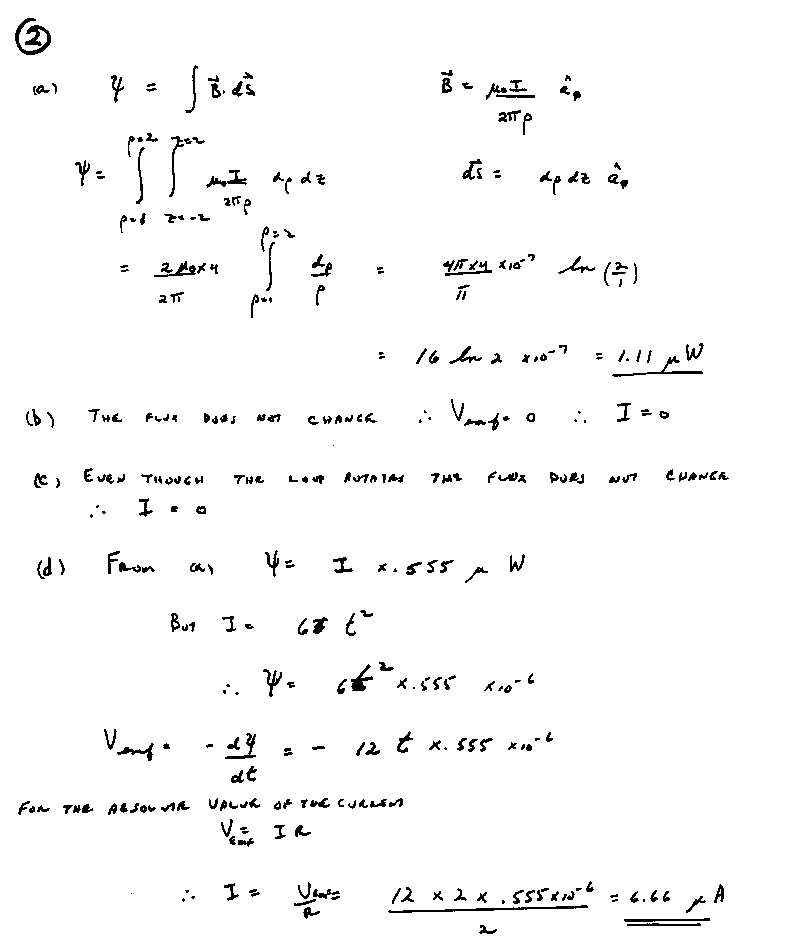 ②
(a) ψ = ∫ B⃗ · dS⃗    B⃗ = μ₀I / 2πρ âᵩ
ψ = ∫_{ρ=1}^{ρ=2} ∫_{z=-2}^{z=2} μ₀I / 2πρ dρ dz    dS⃗ = dρ dz âᵩ
= 2μ₀×4 / 2π ∫_{ρ=1}^{ρ=2} dρ / ρ = 4π×4 / π ×10⁻⁷ ln (2/1)
= 16 ln 2 ×10⁻⁷ = 1.11 μW
(b) THE FLUX DOES NOT CHANGE ∴ Vemf = 0 ∴ I = 0
(c) EVEN THOUGH THE LOOP ROTATES THE FLUX DOES NOT CHANGE
∴ I = 0
(d) FROM a) ψ = I ×.555 μ W
BUT I = 6 t²
∴ ψ = 6t² ×.555 ×10⁻⁶
Vemf = - dψ/dt = - 12 t ×.555 ×10⁻⁶
FOR THE ABSOLUTE VALUE OF THE CURRENT
Vemf = I R
∴ I = Vemf/R = 12 × 2 × .555×10⁻⁶ / 2 = 6.66 μA